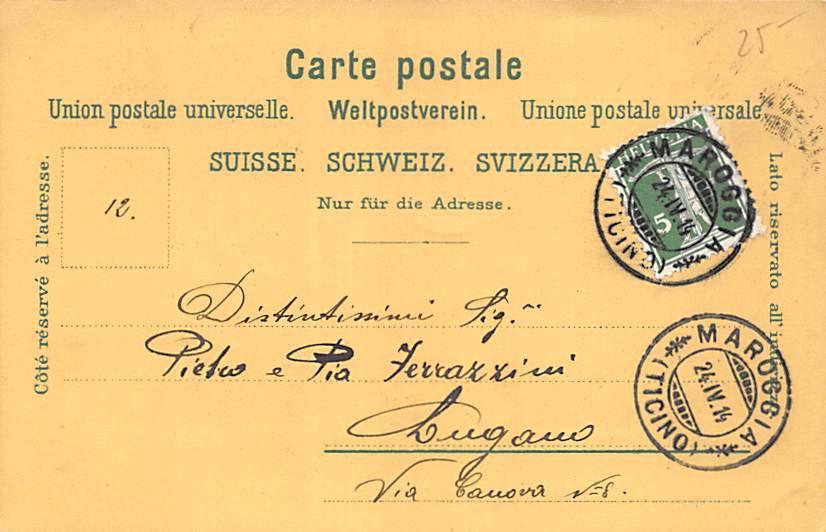 25-
Carte postale
Union postale universelle. Weltpostverein. Unione postale universale
SUISSE. SCHWEIZ. SVIZZERA.
Nur für die Adresse.
Côté réservé à l'adresse.
12.
HELVETIA
5
MAROGGIA
24.IV.14
(TICINO)
Lato riservato all'indirizzo.
Distintissimi Sig.ri
Pietro e Pia Ferrazzini
Lugano
Via Canova
MAROGGIA
24.IV.14
(TICINO)